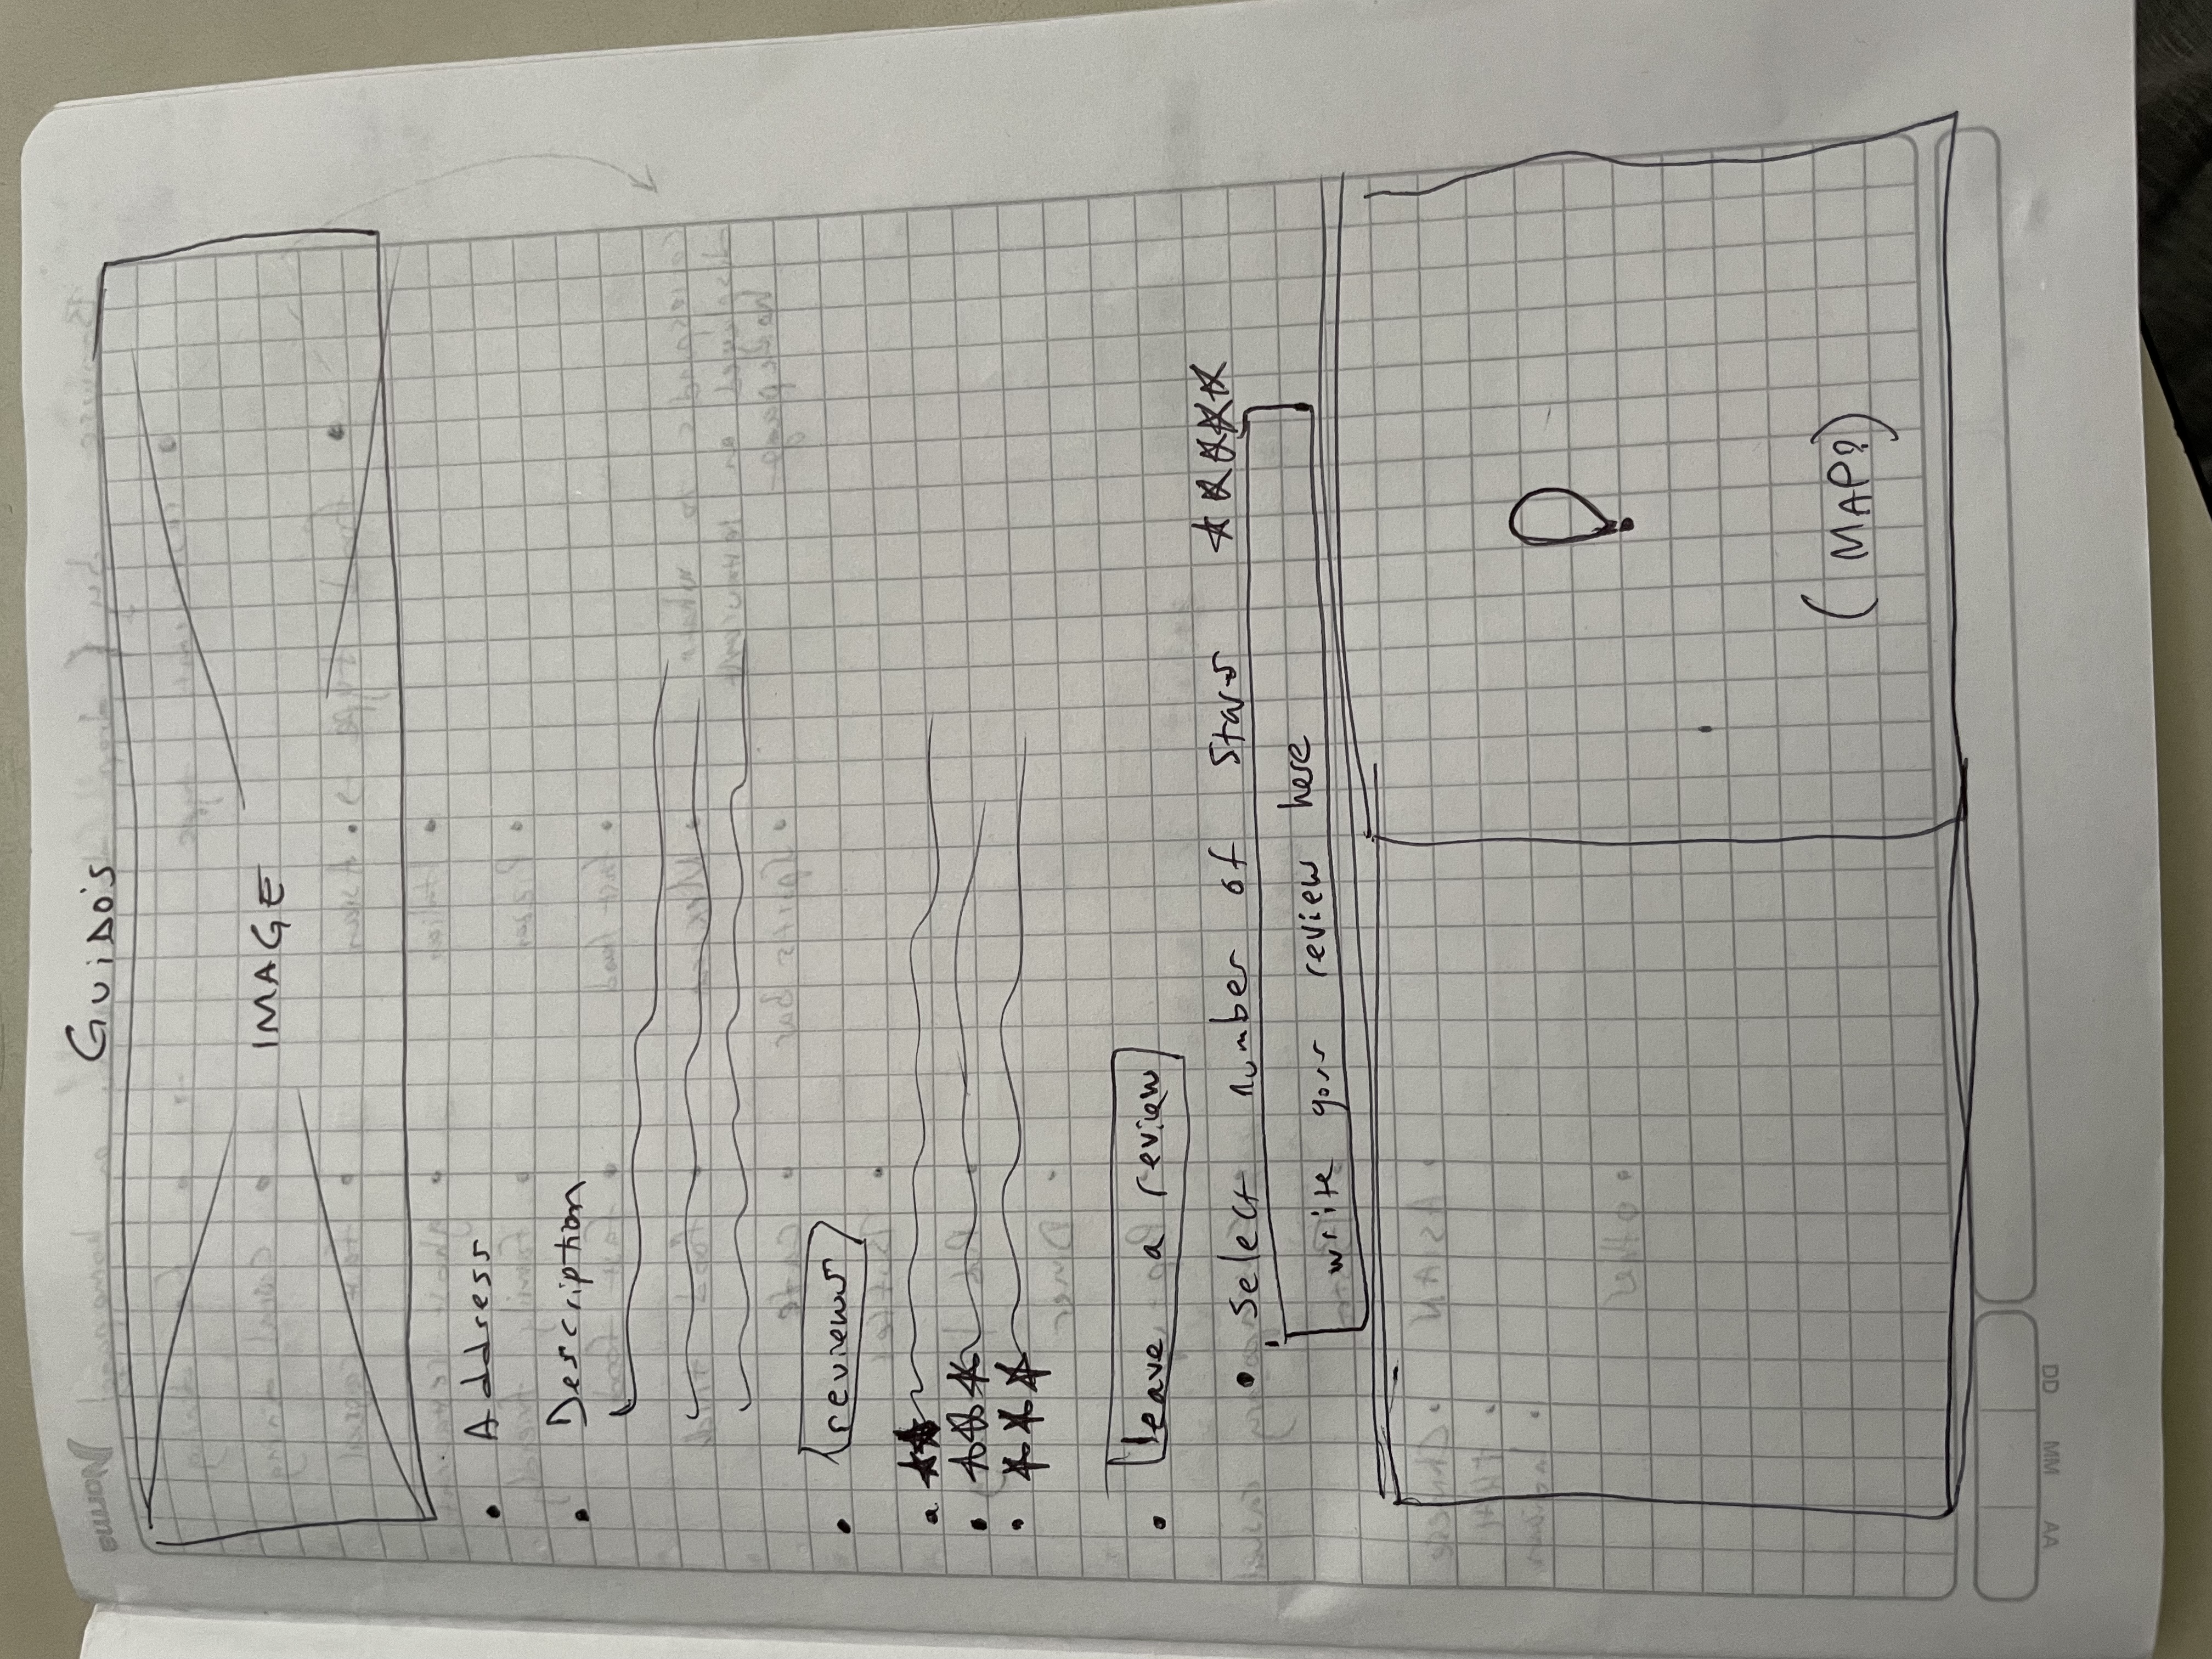 Guido's
IMAGE
• Address
• Description
• reviews
• leave a review
• select number of stars
write your review here
(MAP?)
Norma
AA MM DD